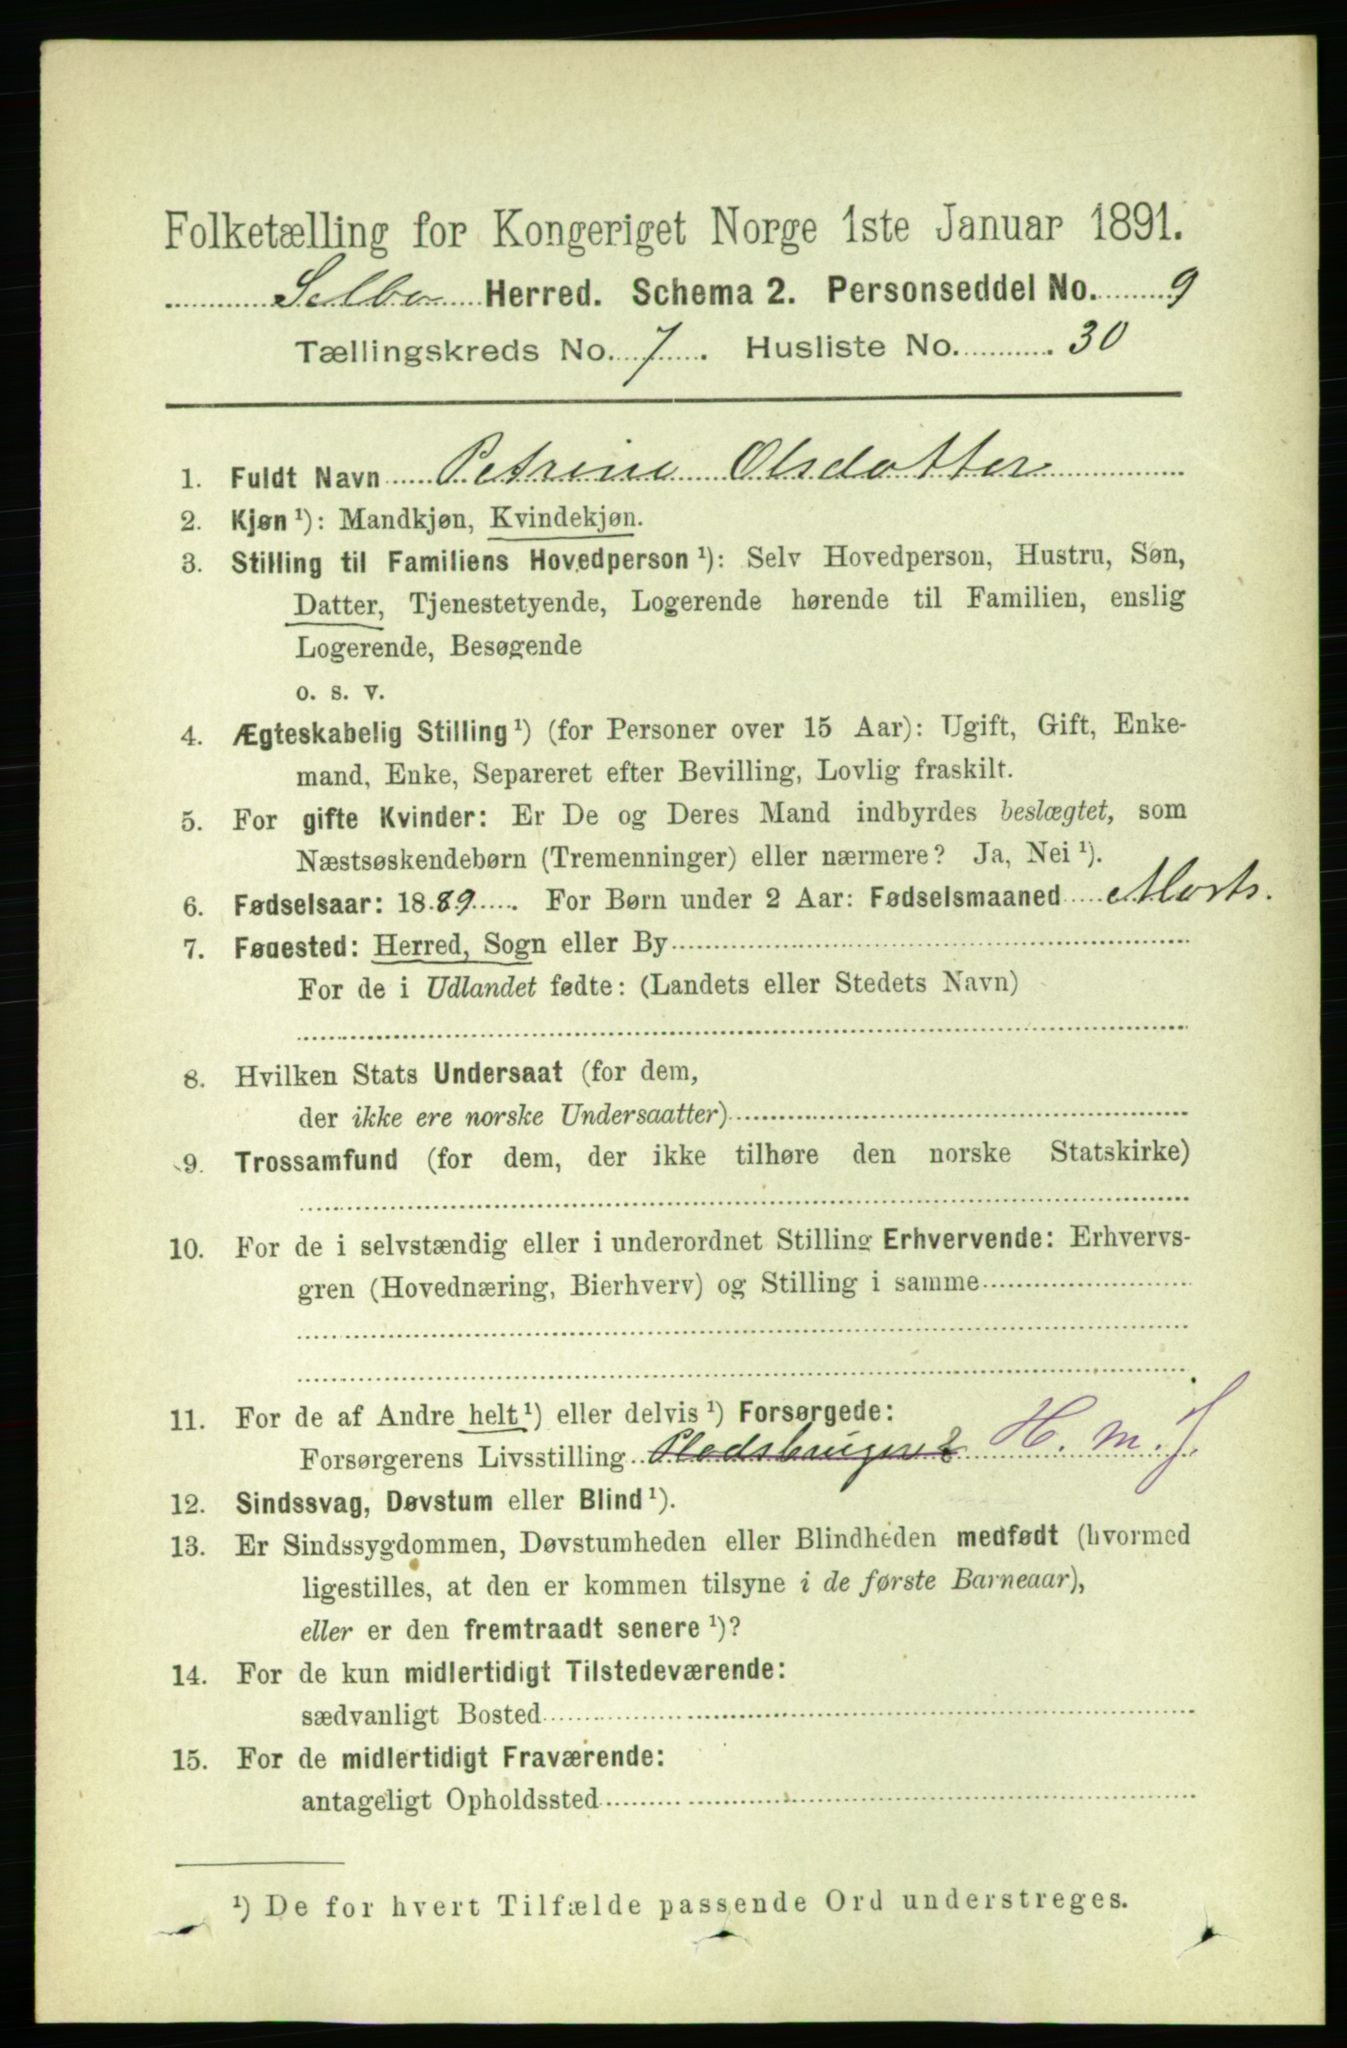 Folketælling for Kongeriget Norge 1ste Januar 1891.
Selbo Herred. Schema 2. Personseddel No. 9
Tællingskreds No. 7. Husliste No. 30
1. Fuldt Navn Petrine Olsdatter
2. Kjøn¹): Mandkjøn, Kvindekjøn.
3. Stilling til Familiens Hovedperson¹): Selv Hovedperson, Hustru, Søn,
Datter, Tjenestetyende, Logerende hørende til Familien, enslig
Logerende, Besøgende
o. s. v.
4. Ægteskabelig Stilling¹) (for Personer over 15 Aar): Ugift, Gift, Enke-
mand, Enke, Separeret efter Bevilling, Lovlig fraskilt.
5. For gifte Kvinder: Er De og Deres Mand indbyrdes beslægtet, som
Næstsøskendebørn (Tremenninger) eller nærmere? Ja, Nei¹).
6. Fødselsaar: 1889. For Børn under 2 Aar: Fødselsmaaned Marts.
7. Fødested: Herred, Sogn eller By
For de i Udlandet fødte: (Landets eller Stedets Navn)
8. Hvilken Stats Undersaat (for dem,
der ikke ere norske Undersaatter)
9. Trossamfund (for dem, der ikke tilhøre den norske Statskirke)
10. For de i selvstændig eller i underordnet Stilling Erhvervende: Erhvervs-
gren (Hovednæring, Bierhverv) og Stilling i samme
11. For de af Andre helt¹) eller delvis¹) Forsørgede:
Forsørgerens Livsstilling Pladsbruger H. m. J.
12. Sindssvag, Døvstum eller Blind¹).
13. Er Sindssygdommen, Døvstumheden eller Blindheden medfødt (hvormed
ligestilles, at den er kommen tilsyne i de første Barneaar),
eller er den fremtraadt senere¹)?
14. For de kun midlertidigt Tilstedeværende:
sædvanligt Bosted
15. For de midlertidigt Fraværende:
antageligt Opholdssted
¹) De for hvert Tilfælde passende Ord understreges.